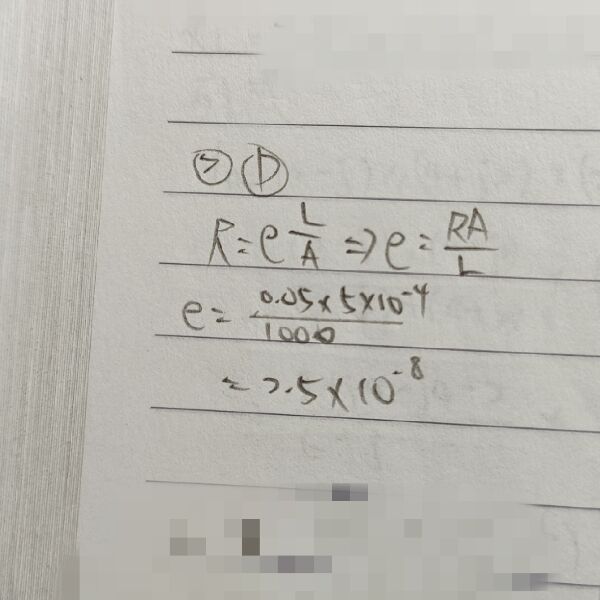 ② Ⓓ
R = ρ L/A ⇒ ρ = RA/L
ρ = 0.05 × 5 × 10⁻⁴ / 1000
= 2.5 × 10⁻⁸